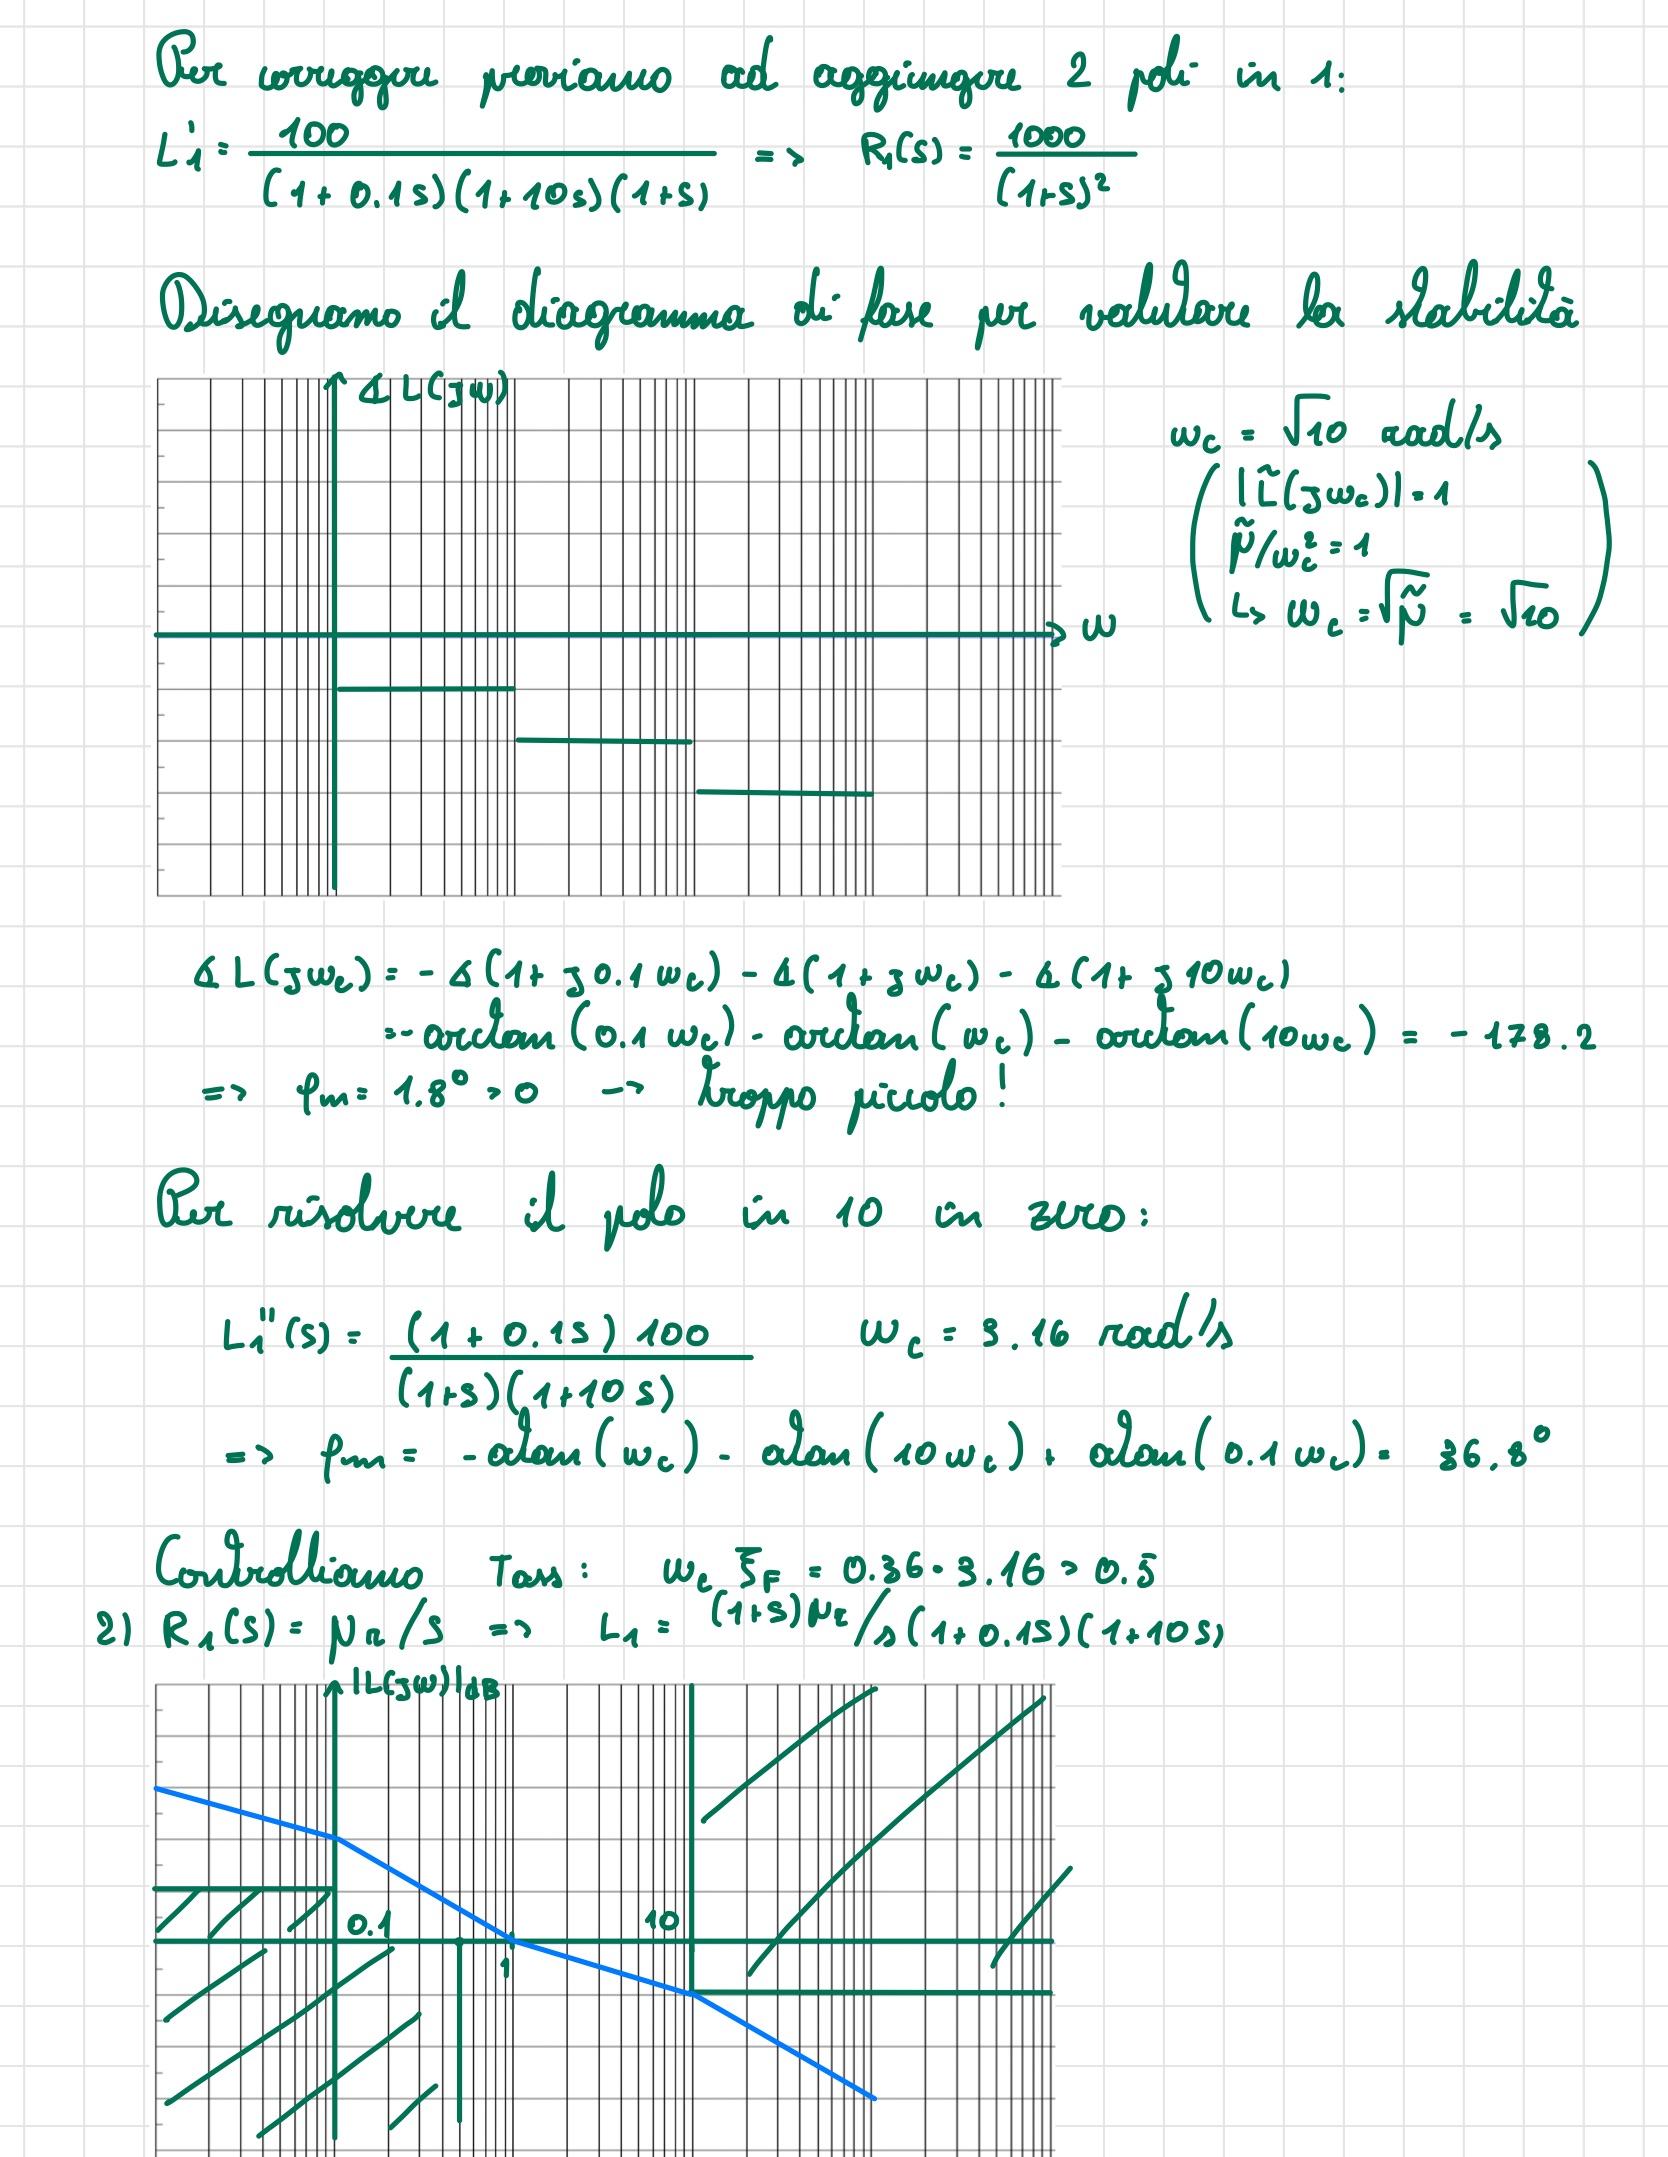 Per correggere proviamo ad aggiungere 2 poli in 1:
L₁' = 100 / (1 + 0.1s)(1+10s)(1+s) => R₁(s) = 1000 / (1+s)²
Disegnamo il diagramma di fase per valutare la stabilità
∡ L(jω)
ω
ω_c = √10 rad/s
|L̃(jω_c)| = 1
μ̃/ω_c² = 1
↳ ω_c = √μ̃ = √10
∡ L(jω_c) = - ∡(1 + j0.1ω_c) - ∡(1 + jω_c) - ∡(1 + j10ω_c)
= - arctan(0.1 ω_c) - arctan(ω_c) - arctan(10ω_c) = - 178.2
=> φm = 1.8° > 0 -> troppo piccolo!
Per risolvere il polo in 10 in zero:
L₁''(s) = (1 + 0.1s) 100 / (1+s)(1+10s) ω_c = 3.16 rad/s
=> φm = - atan(ω_c) - atan(10ω_c) + atan(0.1 ω_c) = 36.8°
Controlliamo Tass: ω_c ξ̄_F = 0.36 · 3.16 > 0.5
2) R₁(s) = μ_R/s => L₁ = (1+s)μ_R/s(1+0.1s)(1+10s)
|L(jω)|dB
0.1
10
1